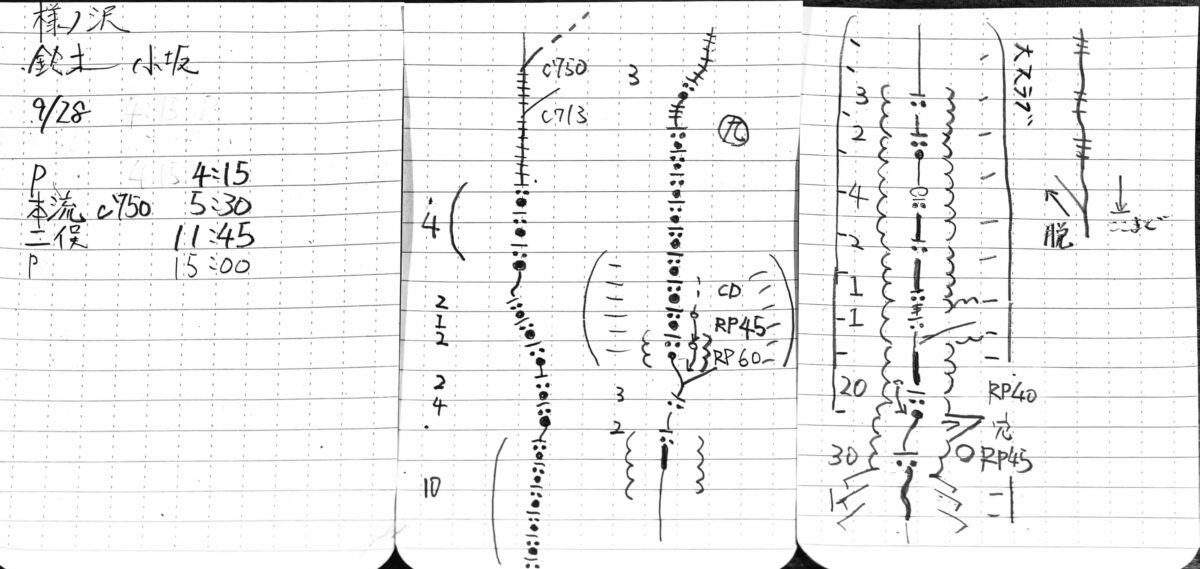 様ノ沢
鈴木 小坂
9/28
P 4:15
本流 c750 5:30
二俣 11:45
P 15:00
c750
c713
4
2
1
2
2
4
10
3
九
CD
RP45
RP60
3
2
3
2
4
2
1
1
20
30
RP40
穴
RP45
大スラブ
脱
ここまで